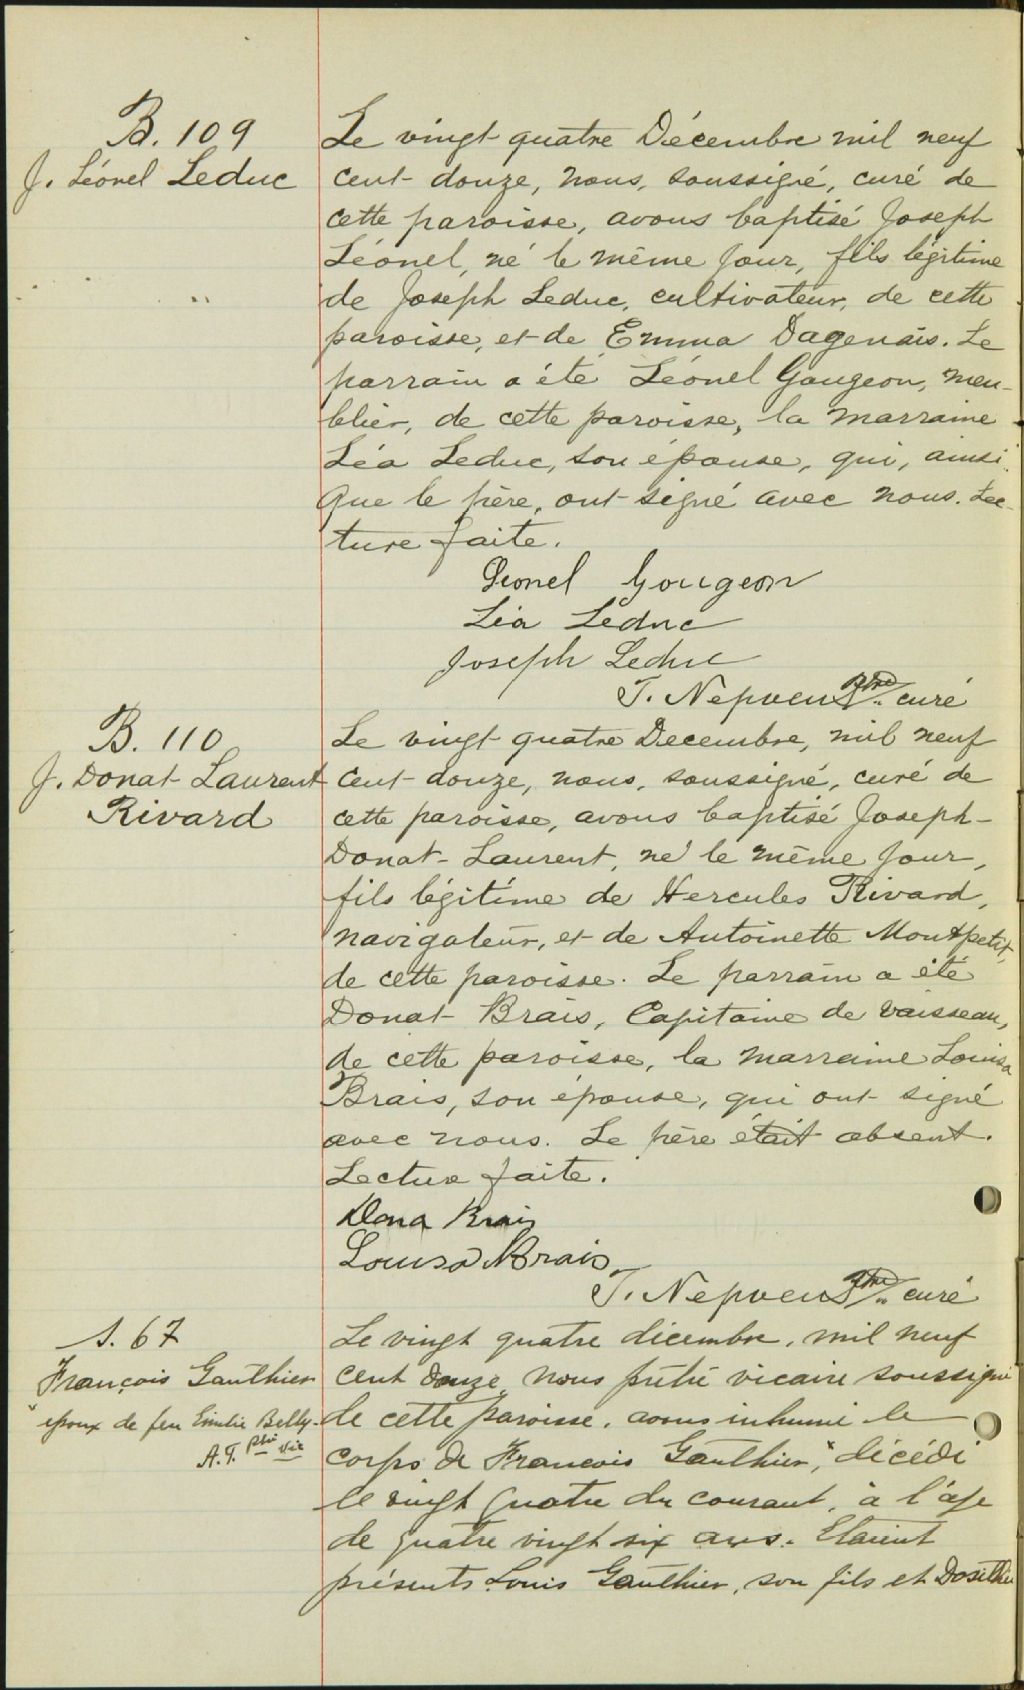 B. 109
J. Léonel Leduc
Le vingt-quatre Décembre mil neuf
cent-douze, nous, soussigné, curé de
cette paroisse, avons baptisé Joseph
Léonel, né le même jour, fils légitime
de Joseph Leduc, cultivateur, de cette
paroisse, et de Emma Dagenais. Le
parrain a été Léonel Gougeon, meu-
blier, de cette paroisse, la marraine
Léa Leduc, son épouse, qui, ainsi
que le père, ont signé avec nous. Lec-
ture faite.
Lionel Gougeon
Léa Leduc
Joseph Leduc
T. Nepveu Ptre curé
B. 110
J. Donat Laurent
Rivard
Le vingt-quatre Decembre, mil neuf
cent-douze, nous, soussigné, curé de
cette paroisse, avons baptisé Joseph-
Donat-Laurent, né le même jour,
fils légitime de Hercules Rivard,
navigateur, et de Antoinette Montpetit,
de cette paroisse. Le parrain a été
Donat Brais, Capitaine de vaisseau,
de cette paroisse, la marraine Louisa
Brais, son épouse, qui ont signé
avec nous. Le père était absent.
Lecture faite.
Dona Brais
Louisa Brais
T. Nepveu Ptre curé
S. 67
François Gauthier
" époux de feu Emilie Belly-
A.T. Ptre Vic
Le vingt quatre décembre, mil neuf
cent douze, nous prêtre vicaire soussigné
de cette paroisse, avons inhumé le
corps de François Gauthier," décédé
le vingt quatre du courant, à l'âge
de quatre vingt six ans. Etaient
présents Louis Gauthier, son fils et Dosithée